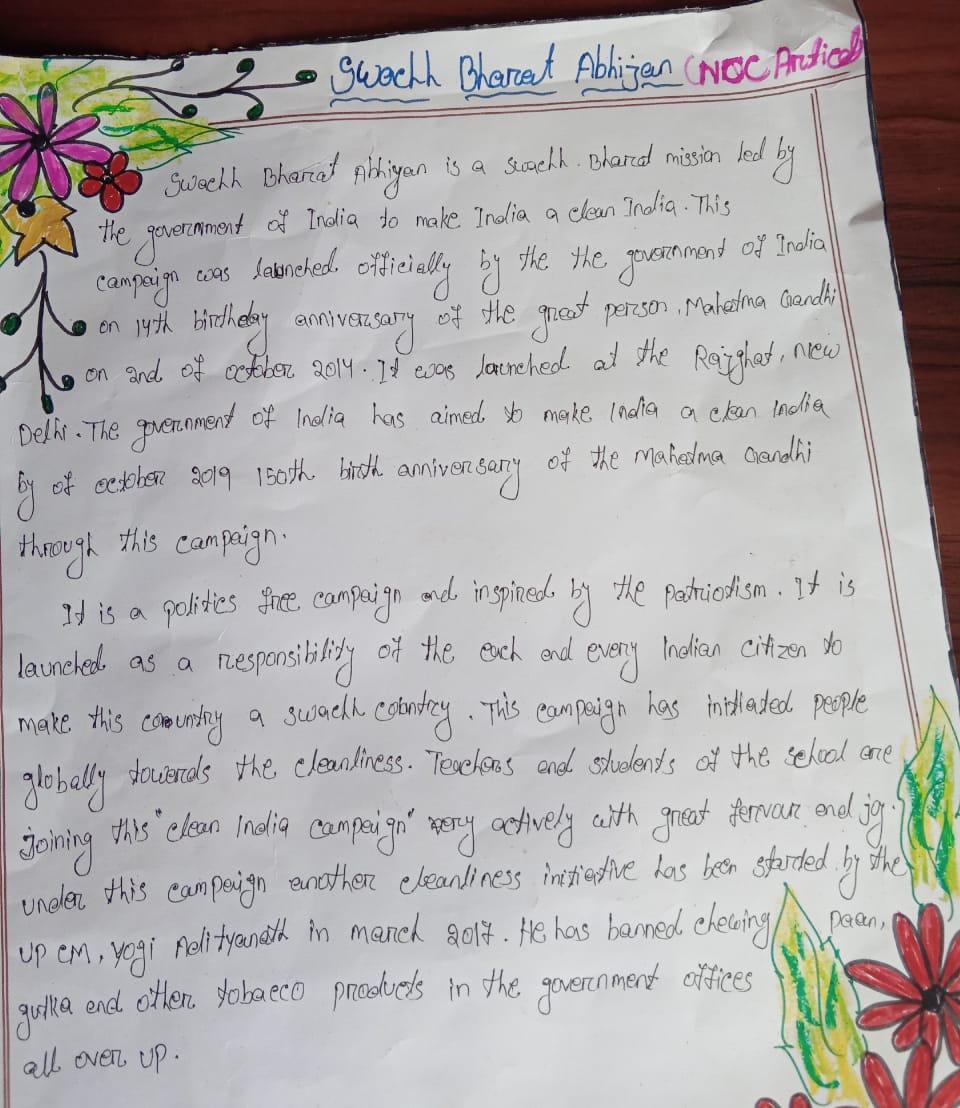 Swachh Bharat Abhijan (NGC Artical
Swachh Bharat Abhiyan is a swachh Bharat mission led by
the government of India to make India a clean India. This
campaign was launched officially by the the government of India
on 14th birthday anniversary of the great person, Mahatma Gandhi
on 2nd of october 2014. It was launched at the Rajghat, new
Delhi. The government of India has aimed to make India a clean India
by of october 2019 150th birth anniversary of the Mahatma Gandhi
through this campaign.
It is a politics free campaign and inspired by the patriotism. It is
launched as a responsibility of the each and every Indian citizen to
make this country a swachh country. This campaign has initiated people
globally towards the cleanliness. Teachers and students of the school are
joining this "clean India campaign" very actively with great fervour and joy.
under this campaign another cleanliness initiative has been started by the
UP CM, yogi Adityanath in march 2017. He has banned chewing paan,
gutka and other tobacco products in the government offices
all over UP.